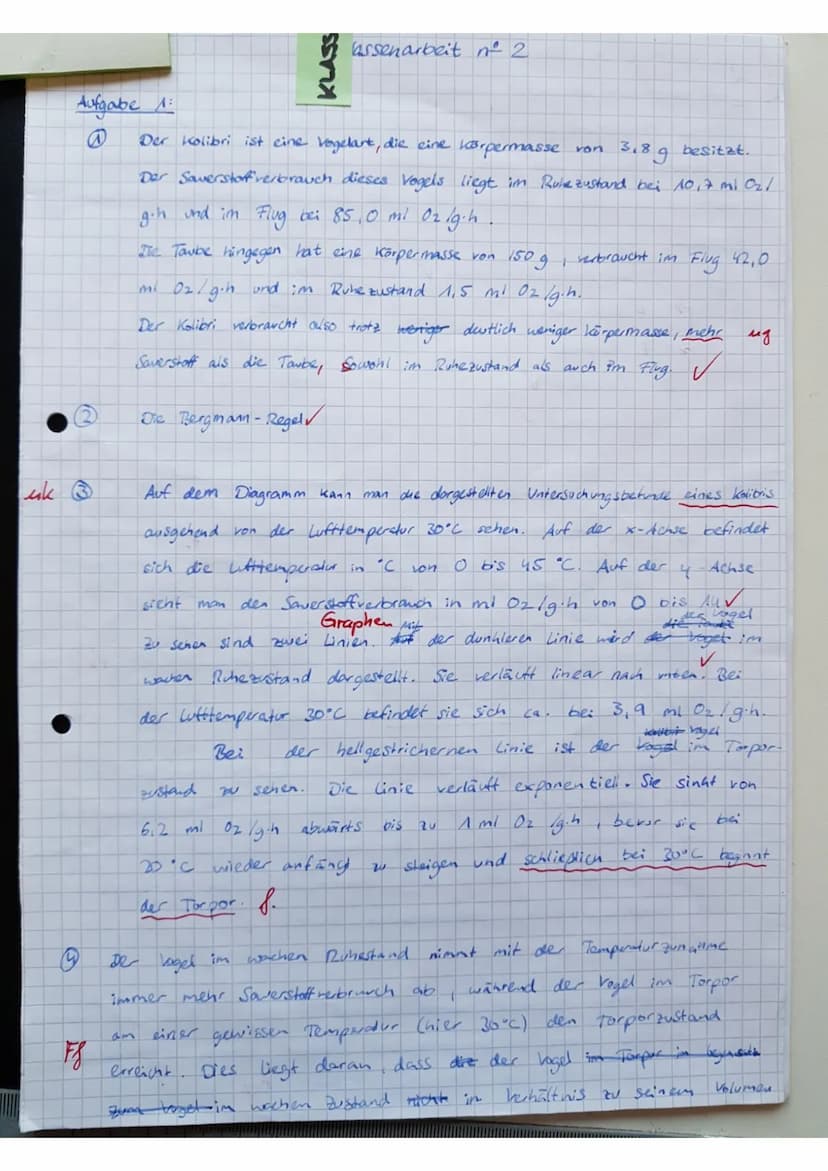 KLASS
assenarbeit n° 2
Aufgabe 1:
① Der Kolibri ist eine Vogelart, die eine Körpermasse von 3,8 g besitzt.
Der Sauerstoffverbrauch dieses Vogels liegt im Ruhezustand bei 10,7 ml O2/
g·h und im Flug bei 85,0 ml O2/g·h.
Die Taube hingegen hat eine Körpermasse von 150 g, verbraucht im Flug 42,0
ml O2/g·h und im Ruhezustand 1,5 ml O2/g·h.
Der Kolibri verbraucht also trotz weniger deutlich weniger Körpermasse, mehr ug
Sauerstoff als die Taube, sowohl im Ruhezustand als auch im Flug. ✓
② Die Bergmann-Regel ✓
uk ③ Auf dem Diagramm kann man die dargestellten Untersuchungsbefunde eines Kolibris
ausgehend von der Lufttemperatur 30°C sehen. Auf der x-Achse befindet
sich die Lufttemperatur in °C von 0 bis 45 °C. Auf der y-Achse
sieht man den Sauerstoffverbrauch in ml O2/g·h von 0 bis 14 ✓
Graphen Mit die Taube der Vogel
zu sehen sind zwei Linien. Auf der dunkleren Linie wird der Vogel im
wachen Ruhezustand dargestellt. Sie verläuft linear nach unten. ✓ Bei
der Lufttemperatur 30°C befindet sie sich ca. bei 3,9 ml O2/g·h.
Kolibri Vogel
Bei der hellgestrichernen Linie ist der Vogel im Torpor-
zustand zu sehen. Die Linie verläuft exponentiell. Sie sinkt von
6,2 ml O2/g·h abwärts bis zu 1 ml O2/g·h, bevor sie bei
20 °C wieder anfängt zu steigen und schließlich bei 30°C beginnt
der Torpor. f.
④ Der Vogel im wachen Ruhestand nimmt mit der Temperaturzunahme
immer mehr Sauerstoffverbrauch ab, während der Vogel im Torpor
am einer gewissen Temperatur (hier 30°C) den Torporzustand
Ff erreicht. Dies liegt daran, dass die der Vogel im Torpor im
zum Vogel im wachen Zustand nicht in Verhältnis zu seinem Volumen